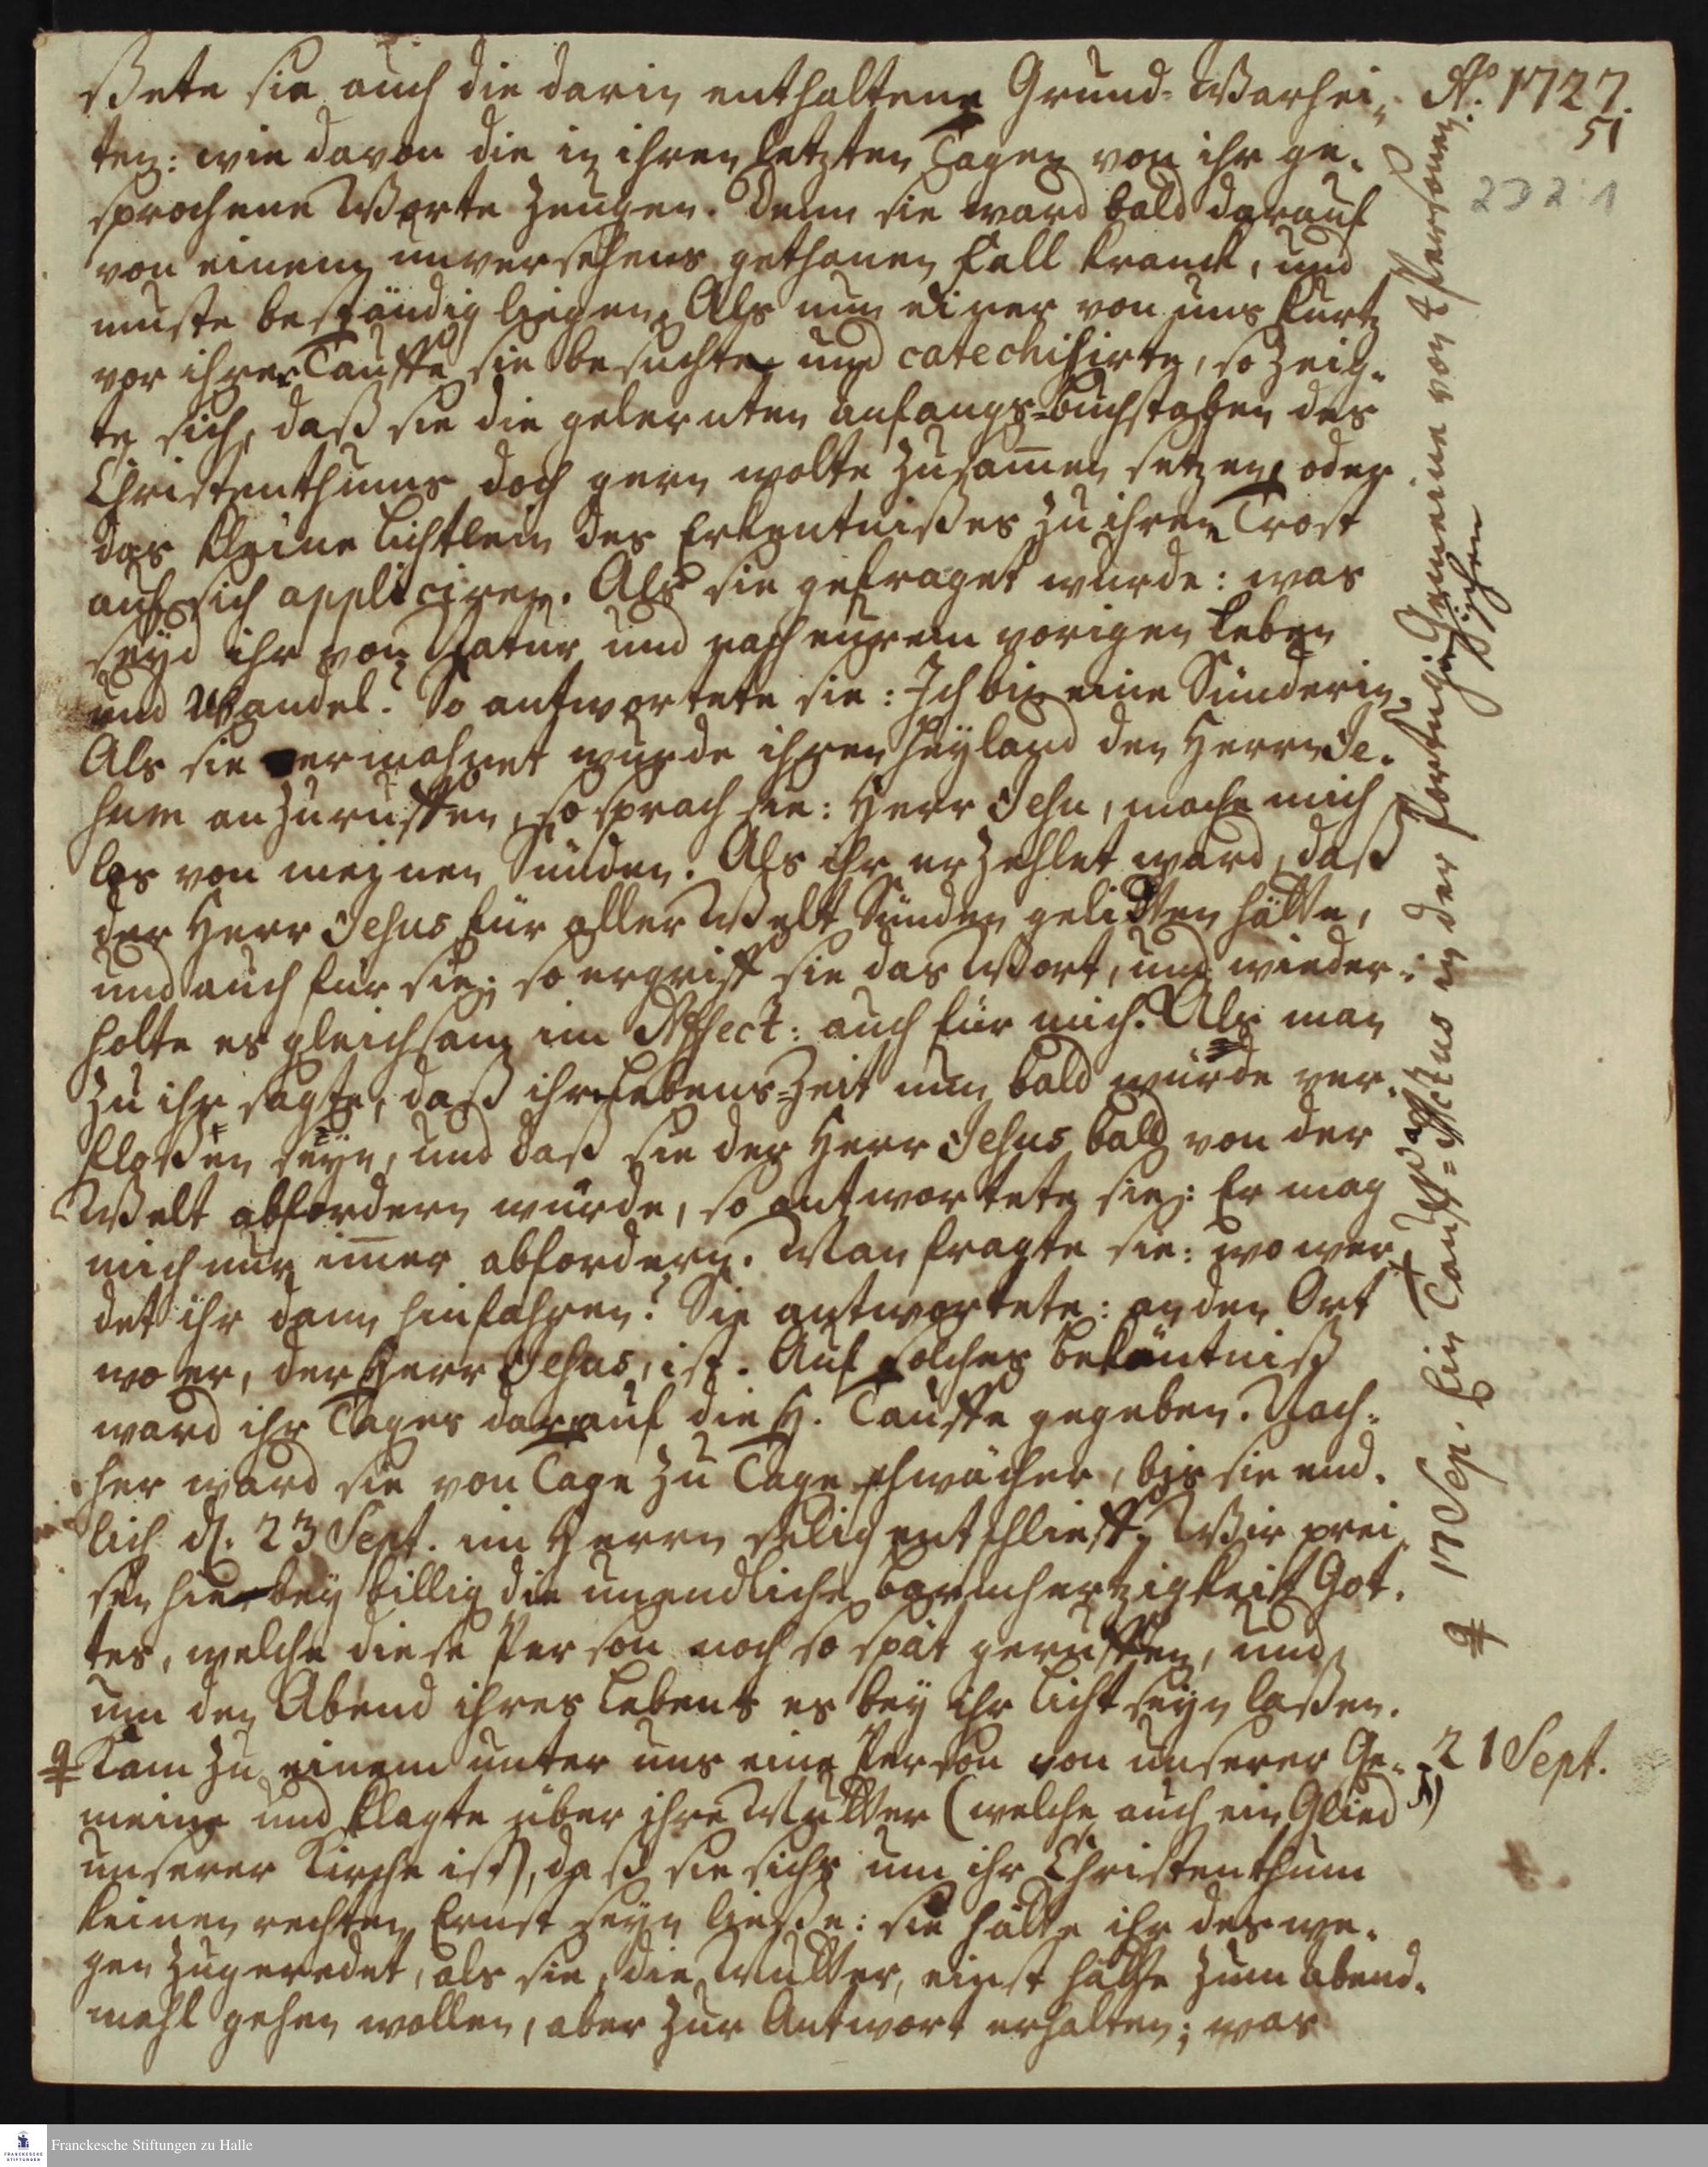 ßete sie auch die darin enthaltene Grund-Warhei-
ten: wie davon die in ihren letzten Tagen von ihr ge-
sprochene Worte zeugen. Denn sie ward bald darauf
von einem unversehens gethanen Fall kranck, und
muste beständig liegen. Als nun einer von uns kurtz
vor ihrer Tauffe sie besuchte und catechisirte, so zeig-
te sich, daß sie die gelernten anfangs-buchstaben des
Christenthums doch gern wolte zusam̄en setzen, oder
das kleine Lichtlein des Erkentnißes zu ihren Trost
auf sich appliciren. Als sie gefraget wurde: was
seyd ihr von Natur und nach eurem vorigen Leben
und Wandel? So antwortete sie: Ich bin eine Sünderin.
Als sie ermahnet wurde ihren Heyland den Herrn Je-
sum anzuruffen, so sprach sie: Herr Jesu, mache mich
los von meinen Sünden. Als ihr erzehlet ward, daß
der Herr Jesus für aller Welt Sünden gelitten hätte,
und auch für sie; so ergriff sie das Wort, und wieder-
holte es gleichsam im Affect: auch für mich. Als man
zu ihr sagte, daß ihre Lebens-Zeit nun bald würde ver-
floßen seyn, und daß sie der Herr Jesus bald von der
Welt abfordern würde, so antwortete sie: Er mag
mich nur im̄er abfordern. Man fragte sie: wo wer-
det ihr dann hinfahren? Sie antwortete: an den Ort
wo er, der Herr Jesus, ist. Auf solches bekäntniß
ward ihr Tages darauf die H. Tauffe gegeben. Nach-
her ward sie von Tage zu Tage schwächer, bis sie end-
lich d. 23 Sept. im Herrn selig entschlieff. Wir prei-
sen hierbey billig die unendliche barmhertzigkeit Got-
tes, welche diese Person noch so spät geruffen, und
um den Abend ihres Lebens es bey ihr licht seyn laßen.
Kam zu einem unter uns eine Person von unserer Ge-
meine und klagte über ihre Mutter (welche auch ein Glied
unserer Kirche ist), daß sie sichs um ihr Christenthum
keinen rechten Ernst seyn ließe: sie hätte ihr deswe-
gen zugeredet, als sie, die Mutter, einst hätte zum abend-
mahl gehen wollen, aber zur Antwort erhalten; was
Ao. 1727.
51
17 Sep. Ein Tauff-Actus in der Portugisischen Gemeine von Personen.
21 Sept.
Franckesche Stiftungen zu Halle